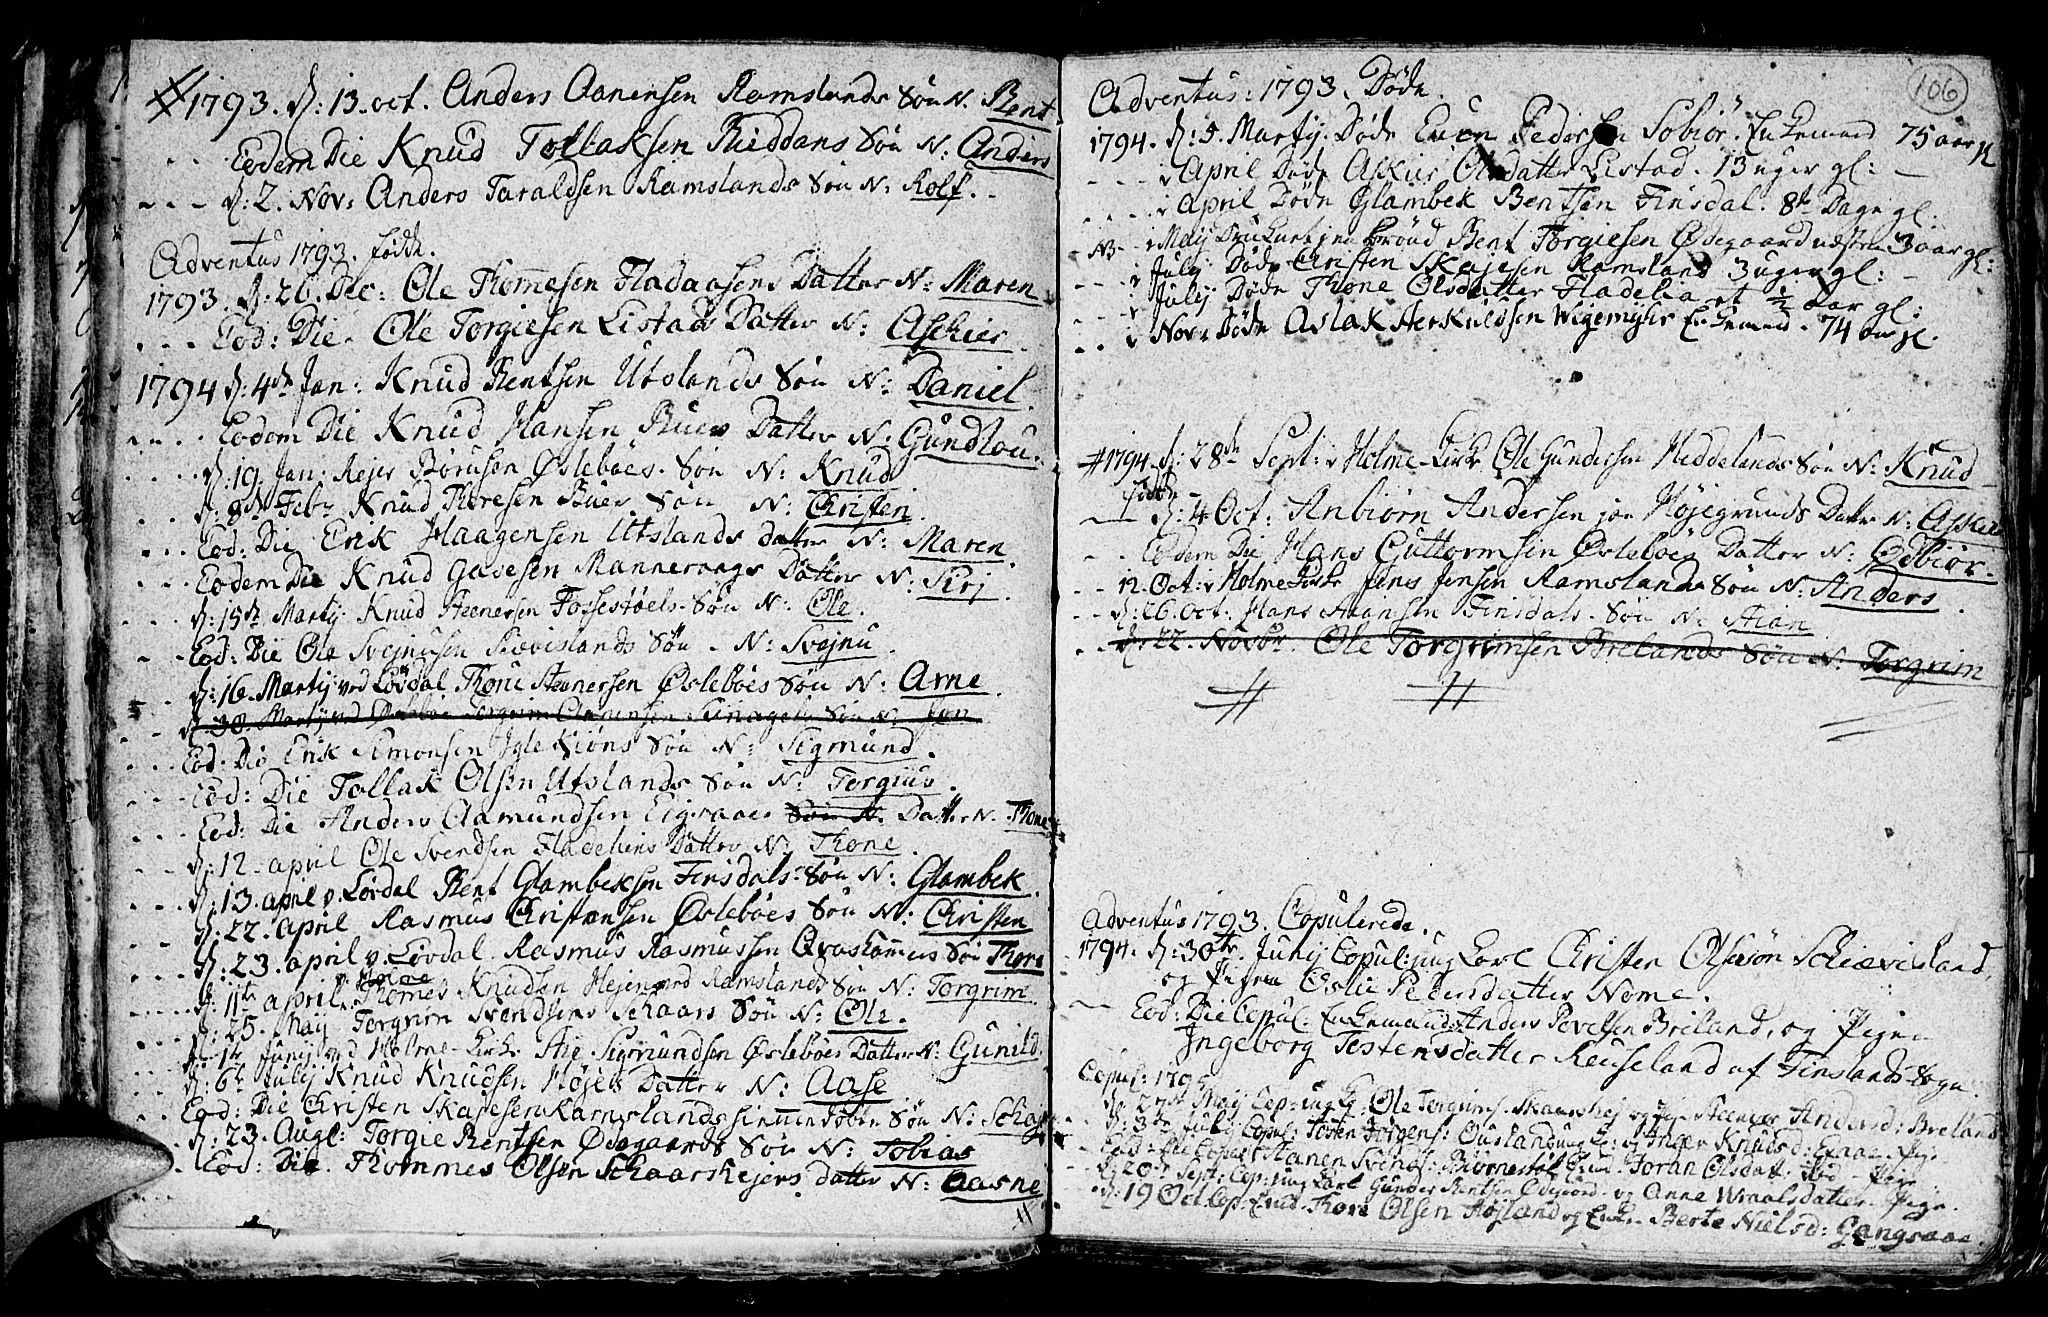 1793. d: 13. oct. Anders Aanensen Ramslands Søn N. Bent
Eodem Die Knud Tollaksen Riddans Søn N: Anders
d: 2. Nov: Anders Taraldsen Ramslands Søn N: Rolf.
Adventus 1793. fødde.
1793. d: 26. Dec: Ole Thommesen Fladaasens Datter N: Maren
Eod: Die. Ole Torgiesen Listads Datter N: Aschier
1794 d: 4de Jan: Knud Bentsen Utslands Søn N: Daniel.
Eodem Die Knud Hansen Buers Datter N: Gundlou.
d: 19. Jan: Rejer Børusen Øsleboes. Søn N: Knud
d: 8de Febr Knud Thoresen Buer. Søn N: Christen
Eod: Die Erik Haagensen Utslands datter N: Maren
Eodem Die Knud Gavesen Mannevaags Datter N: Sirj
d: 15de Martij Knud Steenersen Fossestøels. Søn N: Ole.
Eod: Die Ole Svejnusen Skiævislands Søn. N: Svejnu
d: 16. Martij ved Løvdal Thore Steenersen Øsleboes Søn N: Arne
d 30. Martij ved Torgrim Aanensen Søn N: Jon
Eod: Die Erik Simonsen Iglekiøns Søn N: Sigmund.
Eod: Die Tollak Olsen Utslands Søn N: Torgius.
Eod: Die Anders Aamundsen Eigraaes Søn N. Datter N. Thone
d: 12. april Ole Svendsen Fladeliens Datter N: Thone.
d: 13. april v. Løvdal Bent Glambeksen Finsdals Søn N: Glambek
d: 22. april Rasmus Christensen Øsleboes Søn N: Christen
d: 23. april v. Løvdal. Rasmus Rasmussen Qvaskamers Søn Thore
d: 11te april v. Holme Thomes Knudsen Hejen ved Ramslands Søn N: Torgrim
d: 25. Maij Torgrim Svendsens Schaars Søn N: Ole.
d: 14 Junij ved Holme-Kirke Stie Sigmundsen Øsleboes Datter N: Gunild.
d: 6te Julij Knud Knudsen Højes Datter N: Aase
Eod: Die Christen Skajesen Ramslands hiemmedøbte Søn N: Schaj
d: 23. Aug: Torgie Bentsen Ødegaards Søn N: Tobias
Eod: Die. Thommes Olsen Schaarshejens datter N: Aasne
106
Adventus: 1793. Døde.
1794. d: 5. Martij. Døde Even Pedersen Sobiør. Enkemand 75 aar gl
i April Døde Askier Olsdatter Listad. 13 uger gl:
i April Døde Glambek Bentsen Finsdal. 8te Dage gl:
NB i Maij Druknet j en Brønd Bent Torgiesen Ødegaard næsten 3 aar gl:
i Julij Døde Christen Skajesen Ramsland 3 uger gl:
i Julij Døde Thone Olsdatter Fladelia et ½ Aar gl:
i Nov: Døde Aslak Herkuldsen Wigemyhr Enkemand. 74 aar gl.
1794. d: 28de Sept: i Holme-Kirke Ole Gundersen Heddelands Søn N: Knud
fødde
d: 4 Oct: Anbiørn Andersen jon Højegrunds Datter N: Askier
Eodem Die Hans Guttormsen Øsleboes Datter N: Ødbiør.
12. Oct: i Holme Kirke Jens Jensen Ramslands Søn N: Anders
d: 26. Oct: Hans Finsdals. Søn N: Stian
d: 22. Novbr. Ole Torgrimsen Brelands Søn N: Torgrim
Adventus 1793. Copulerede.
1794. d: 30te Junij Copul: ung Karl Christen Olsesøn Schiævisland,
og Pigen Oslie Pedersdatter Nome.
Eod: Die Copul. Enkemand Anders Povelsen Breland, og Pigen
Ingeborg Testensdatter Reuseland af Finslands-Sogn
Copul: 1795
d: 27de Maij Cop: ung Kg: Ole Torgrims. Skaarshej og Pige Steenvor Andersd: Breland
d: 3de Julij Copul: Tosten Jørgens: Ousland ung Kg: og Inger Knudsd:
Eod: Die Copul: Hanen Svends: Biørnestøl og Joran Olsdat.
d: 20de Sept: Cop: ung Karl Gunder Bentsen Ødegord og Anne Wraalsdatter Pige.
d: 19 Oct Cop: Enk. Thore Olsen Højland og Enke Berte Nielsd: Gangsaae